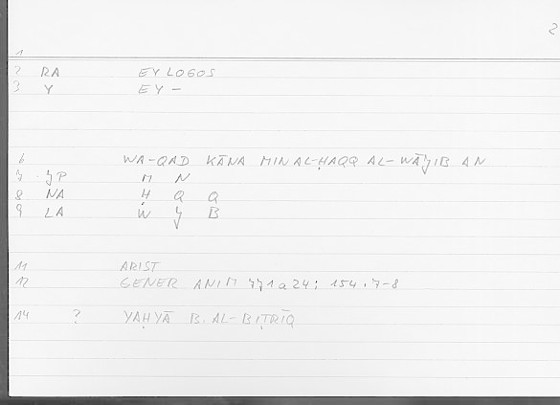 2
1
2 RA EYLOGOS
3 Y EY-
6 WA-QAD KĀNA MIN AL-ḤAQQ AL-WĀJIB AN
7 JP M N
8 NA Ḥ Q Q
9 LA W J B
11 ARIST
12 GENER ANIM 771a24; 154.7-8
14 ? YAḤYĀ B. AL-BIṬRĪQ